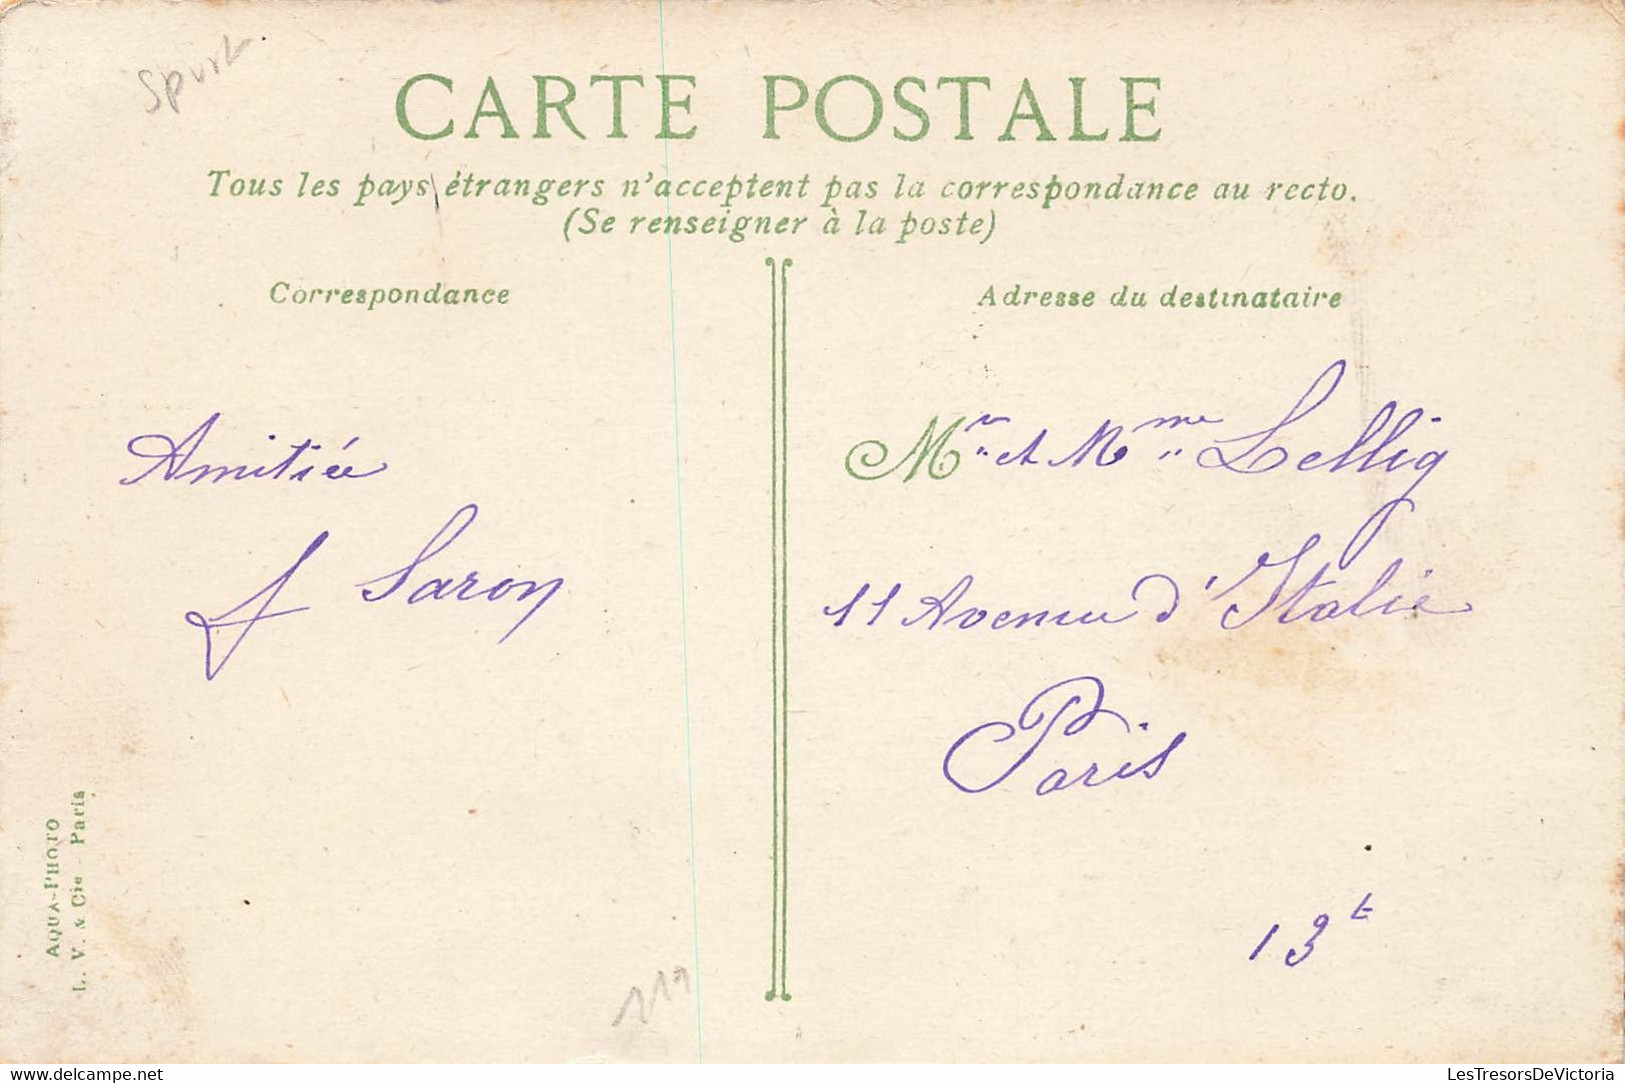 CARTE POSTALE
Tous les pays étrangers n'acceptent pas la correspondance au recto.
(Se renseigner à la poste)
Correspondance
Adresse du destinataire
Amitiée
Saron
Mr et Mme Lellig
11 Avenue d'Italie
Paris
13t
AQUA-PHOTO
L. V. & Cie - Paris
www.delcampe.net
LesTresorsDeVictoria